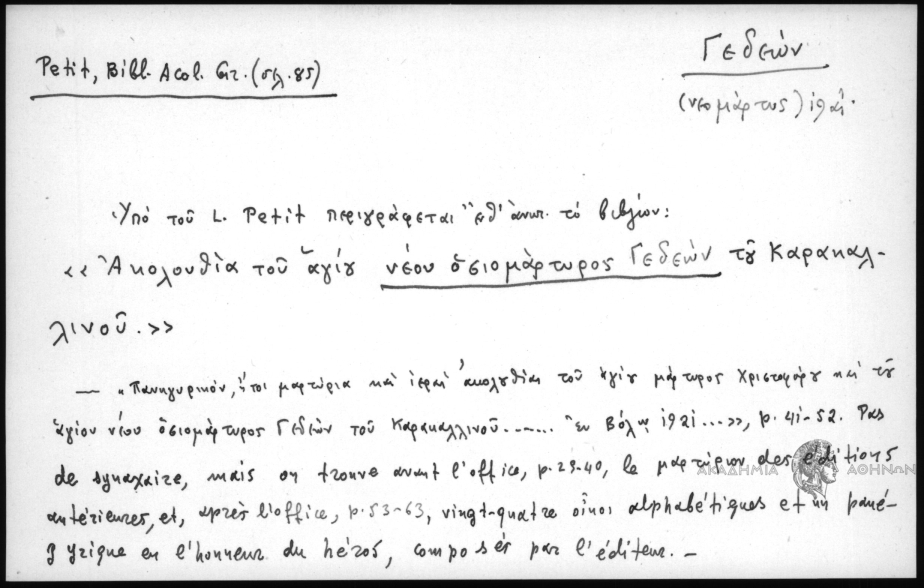 Γεδεών
Petit, Bibl. Acol. Gr. (σελ. 85)
(νεομάρτυς) 1921.
Ὑπὸ τοῦ L. Petit περιγράφεται τὸ βιβλίον:
«Ἀκολουθία τοῦ ἁγίου νέου ὁσιομάρτυρος Γεδεὼν τοῦ Καρακαλ-
λινοῦ.»
— «Πανηγυρικόν, ἤτοι μαρτύρια καὶ ἱεραὶ ἀκολουθίαι τοῦ ἁγίου μάρτυρος Χριστοφόρου καὶ τοῦ
ἁγίου νέου ὁσιομάρτυρος Γεδεὼν τοῦ Καρακαλλινοῦ....... ἐν Βόλῳ 1921...», p. 41-52. Pas
de synaxaire, mais on trouve avant l'office, p. 29-40, le μαρτύριον des éditions
ΑΚΑΔΗΜΙΑ ΑΘΗΝΩΝ
antérieures, et, après l'office, p. 53-63, vingt-quatre οἶκοι alphabétiques et un pané-
gyrique en l'honneur du héros, composés par l'éditeur. —